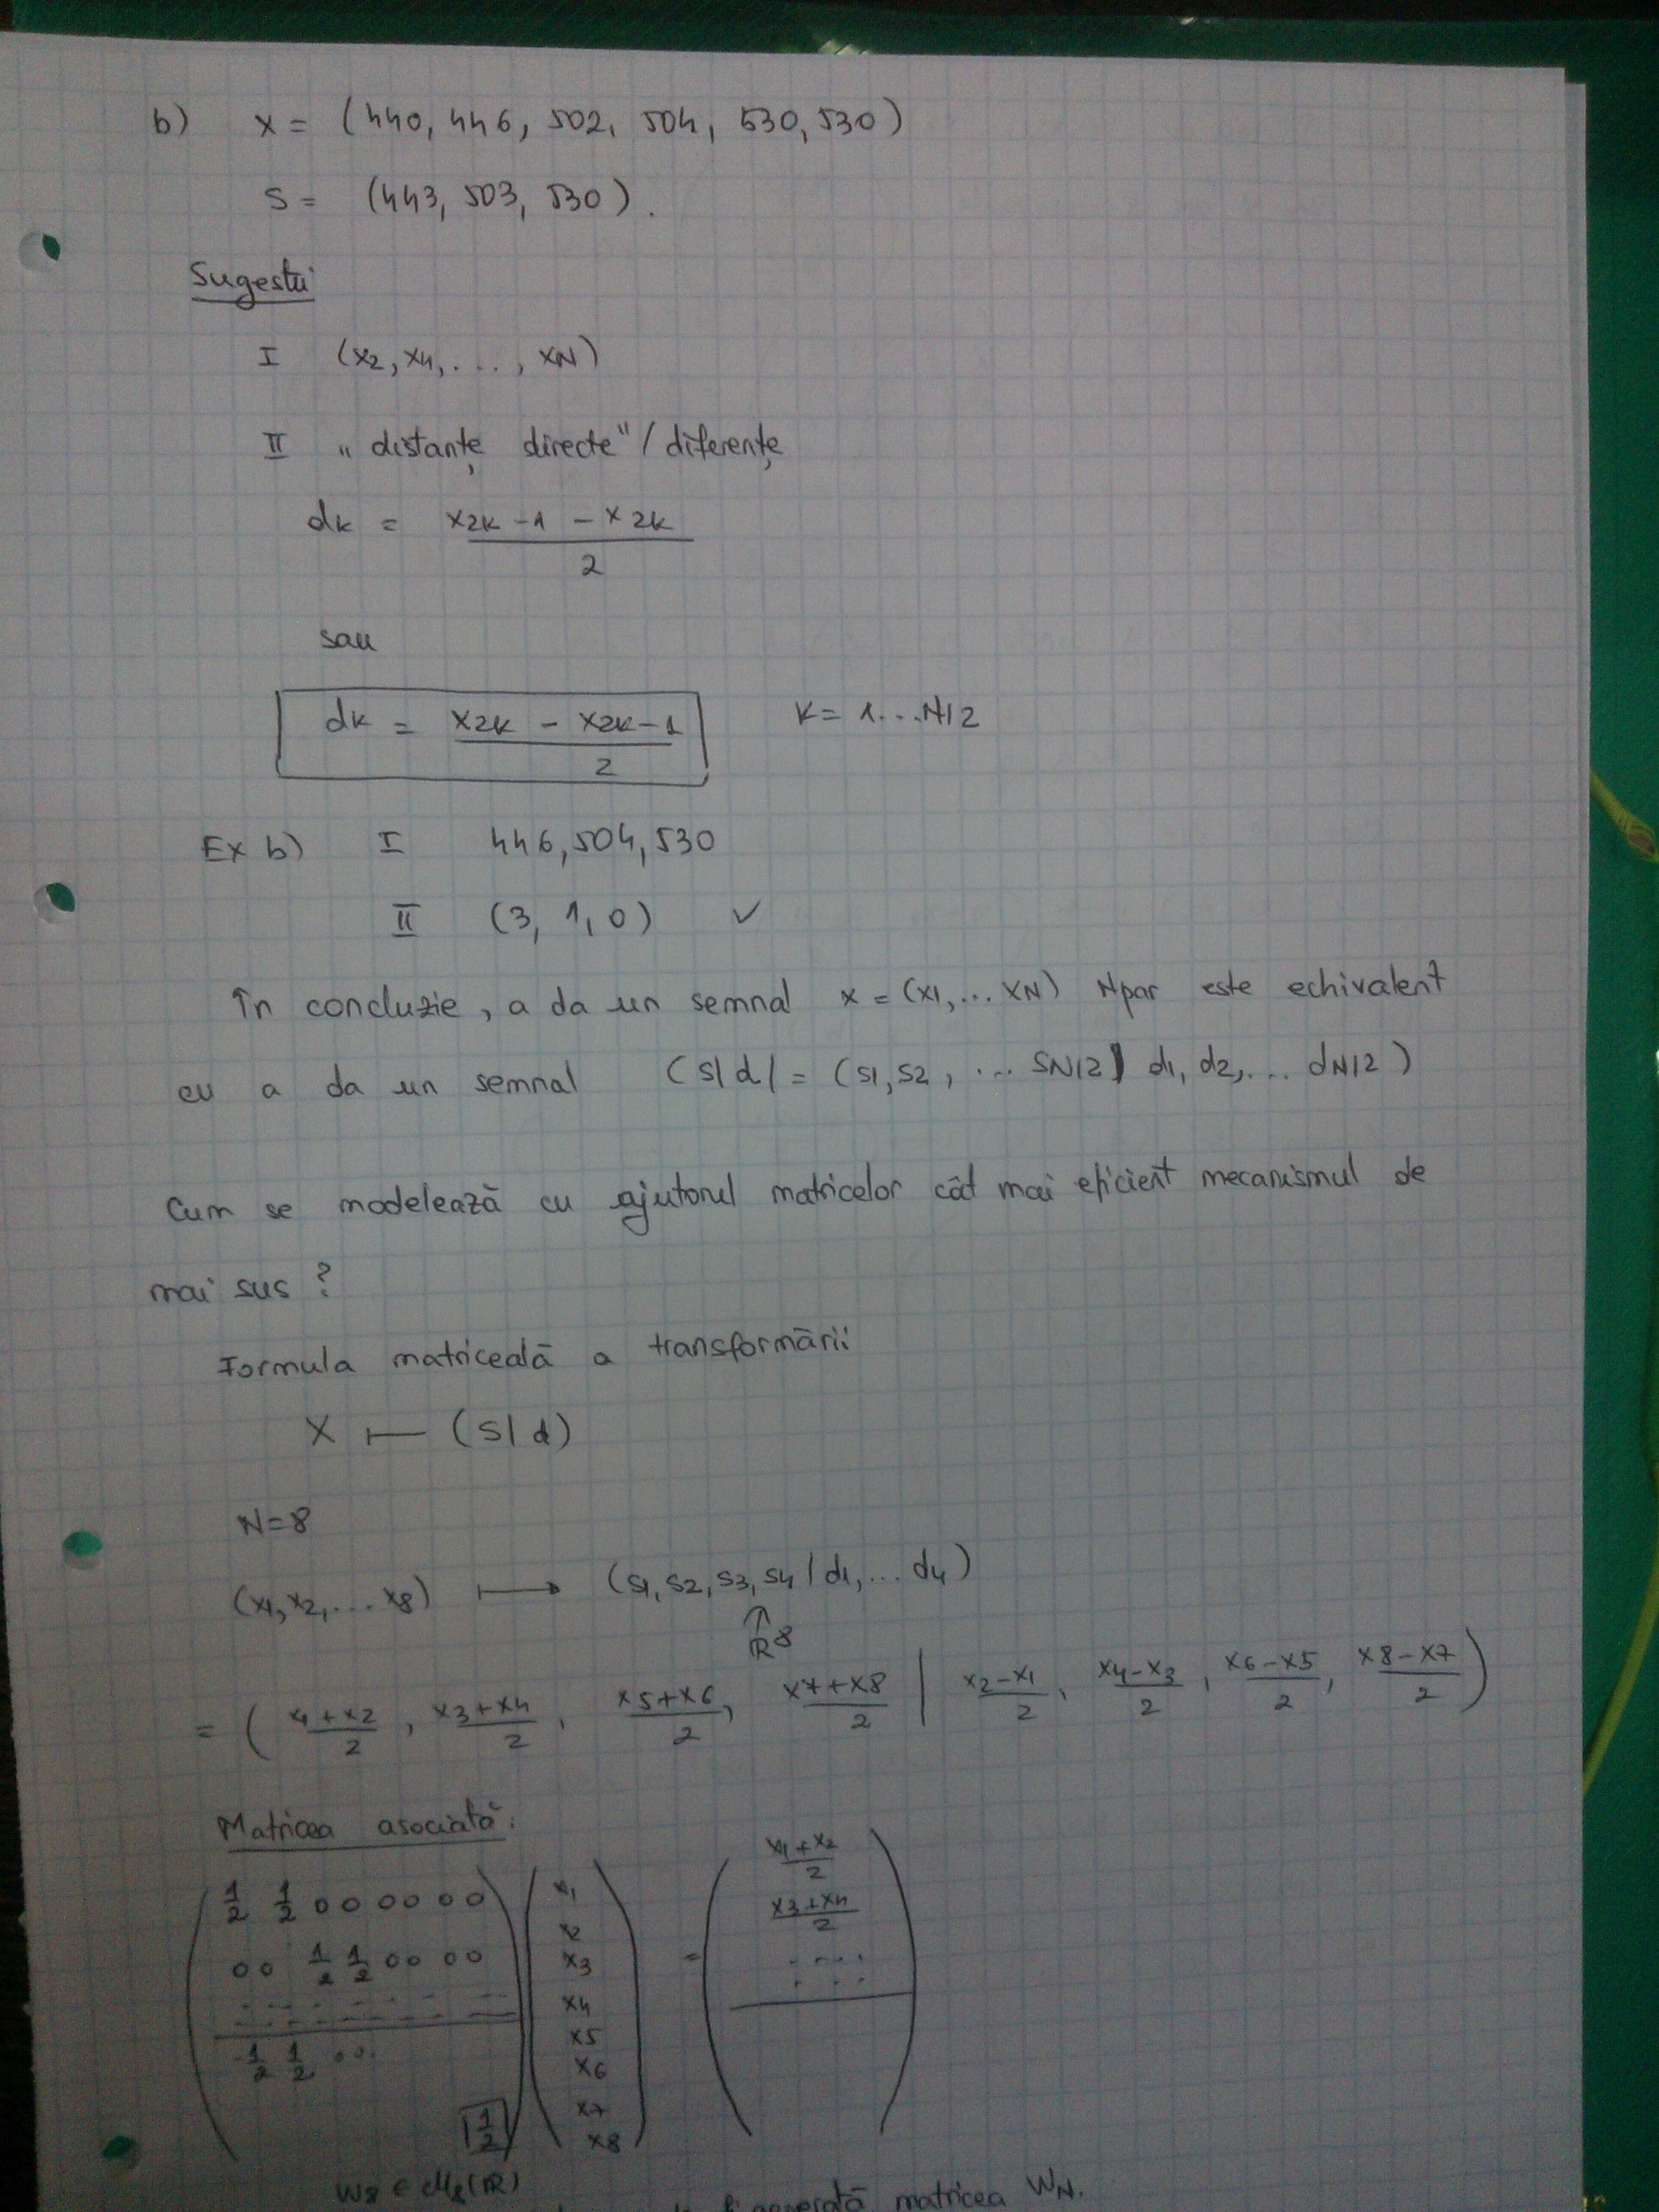 b) x = (440, 446, 502, 504, 530, 530)
s = (443, 503, 530).
Sugestii
I (x2, x4, ..., xN)
II „distanțe directe"/diferențe
dk = x2k-1 - x2k / 2
sau
dk = x2k - x2k-1 / 2 k = 1...N/2
Ex b) I 446, 504, 530
II (3, 1, 0) ✓
În concluzie, a da un semnal x = (x1, ... xN) N par este echivalent
cu a da un semnal (s|d| = (s1, s2, ... sN/2) d1, d2, ... dN/2)
Cum se modelează cu ajutorul matricelor cât mai eficient mecanismul de
mai sus?
Formula matriceală a transformării
X ⊢ (s|d)
N=8
(x1, x2, ... x8) ⟼ (s1, s2, s3, s4 | d1, ... d4)
↑
R8
= ( x1+x2 / 2, x3+x4 / 2, x5+x6 / 2, x7+x8 / 2 | x2-x1 / 2, x4-x3 / 2, x6-x5 / 2, x8-x7 / 2 )
Matricea asociată:
1/2 1/2 0 0 0 0 0 0 x1 x1+x2 / 2
x2
0 0 1/2 1/2 0 0 0 0 x3 = x3+x4 / 2
x4
x5
-1/2 1/2 0 0. x6
x7
1/2 x8
W8 ∈ M8(R)
generată matricea WN.